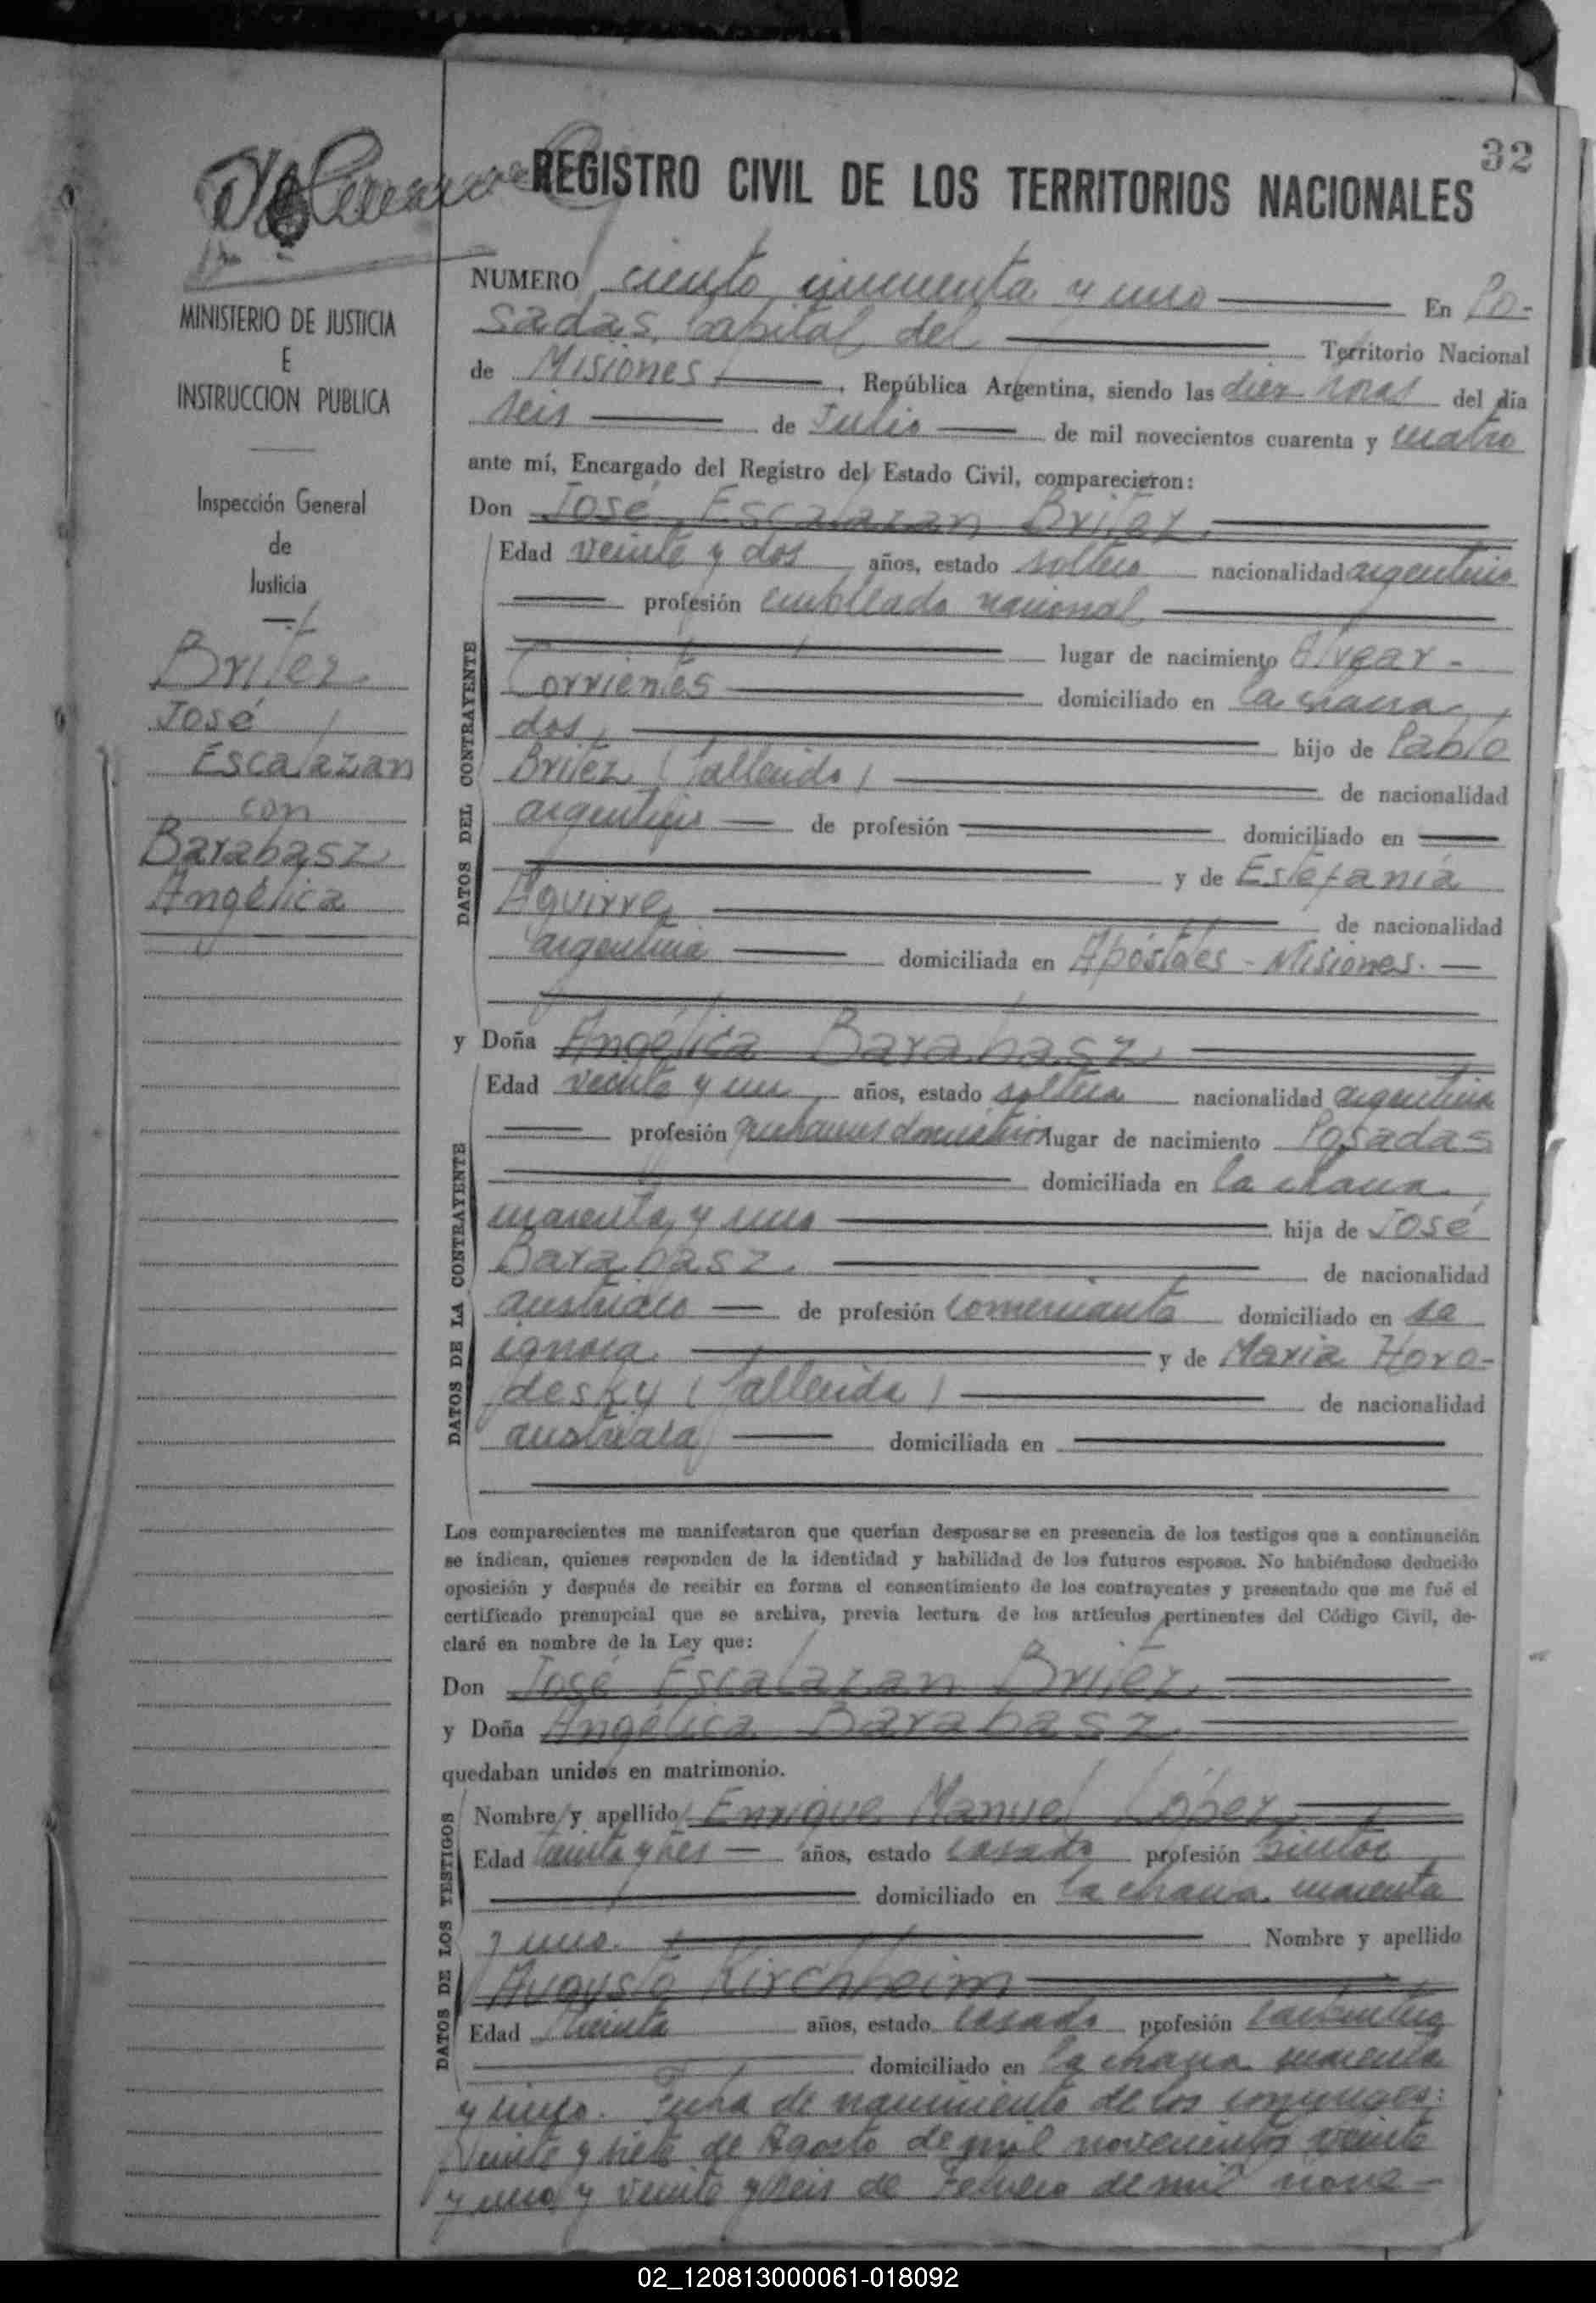 32
REGISTRO CIVIL DE LOS TERRITORIOS NACIONALES
MINISTERIO DE JUSTICIA
E
INSTRUCCION PUBLICA
Inspección General
de
Justicia
Britez
José
Escalazan
con
Barabasz
Angélica
NUMERO ciento cincuenta y uno En Po-
sadas, Capital del Territorio Nacional
de Misiones, República Argentina, siendo las diez horas del día
seis de Julio de mil novecientos cuarenta y cuatro
ante mí, Encargado del Registro del Estado Civil, comparecieron:
Don José Escalazan Britez.
DATOS DEL CONTRAYENTE
Edad veinte y dos años, estado soltero nacionalidad argentino
profesión empleado nacional
lugar de nacimiento Alvear -
Corrientes domiciliado en la chacra
dos, hijo de Pablo
Britez (fallecido) de nacionalidad
argentino de profesión domiciliado en
y de Estefanía
Aguirre, de nacionalidad
argentina domiciliada en Apóstoles - Misiones.
y Doña Angélica Barabasz.
DATOS DE LA CONTRAYENTE
Edad veinte y un años, estado soltera nacionalidad argentina
profesión quehaceres domésticos lugar de nacimiento Posadas
domiciliada en la chacra
cuarenta y uno hija de José
Barabasz. de nacionalidad
austriaco de profesión comerciante domiciliado en se
ignora. y de Maria Horo-
desky (fallecida) de nacionalidad
austriaca domiciliada en
Los comparecientes me manifestaron que querían desposarse en presencia de los testigos que a continuación
se indican, quienes responden de la identidad y habilidad de los futuros esposos. No habiéndose deducido
oposición y después de recibir en forma el consentimiento de los contrayentes y presentado que me fué el
certificado prenupcial que se archiva, previa lectura de los artículos pertinentes del Código Civil, de-
claré en nombre de la Ley que:
Don José Escalazan Britez.
y Doña Angélica Barabasz.
quedaban unidos en matrimonio.
DATOS DE LOS TESTIGOS
Nombre y apellido Enrique Manuel López
Edad treinta y tres años, estado casado profesión pintor
domiciliado en la chacra cuarenta
y uno. Nombre y apellido
Augusto Kirchheim
Edad treinta años, estado casado profesión carpintero
domiciliado en la chacra cuarenta
y cinco. Fecha de nacimiento de los conyuges:
Veinte y siete de Agosto de mil novecientos veinte
y uno y veinte y seis de Febrero de mil nove-
02_120813000061-018092